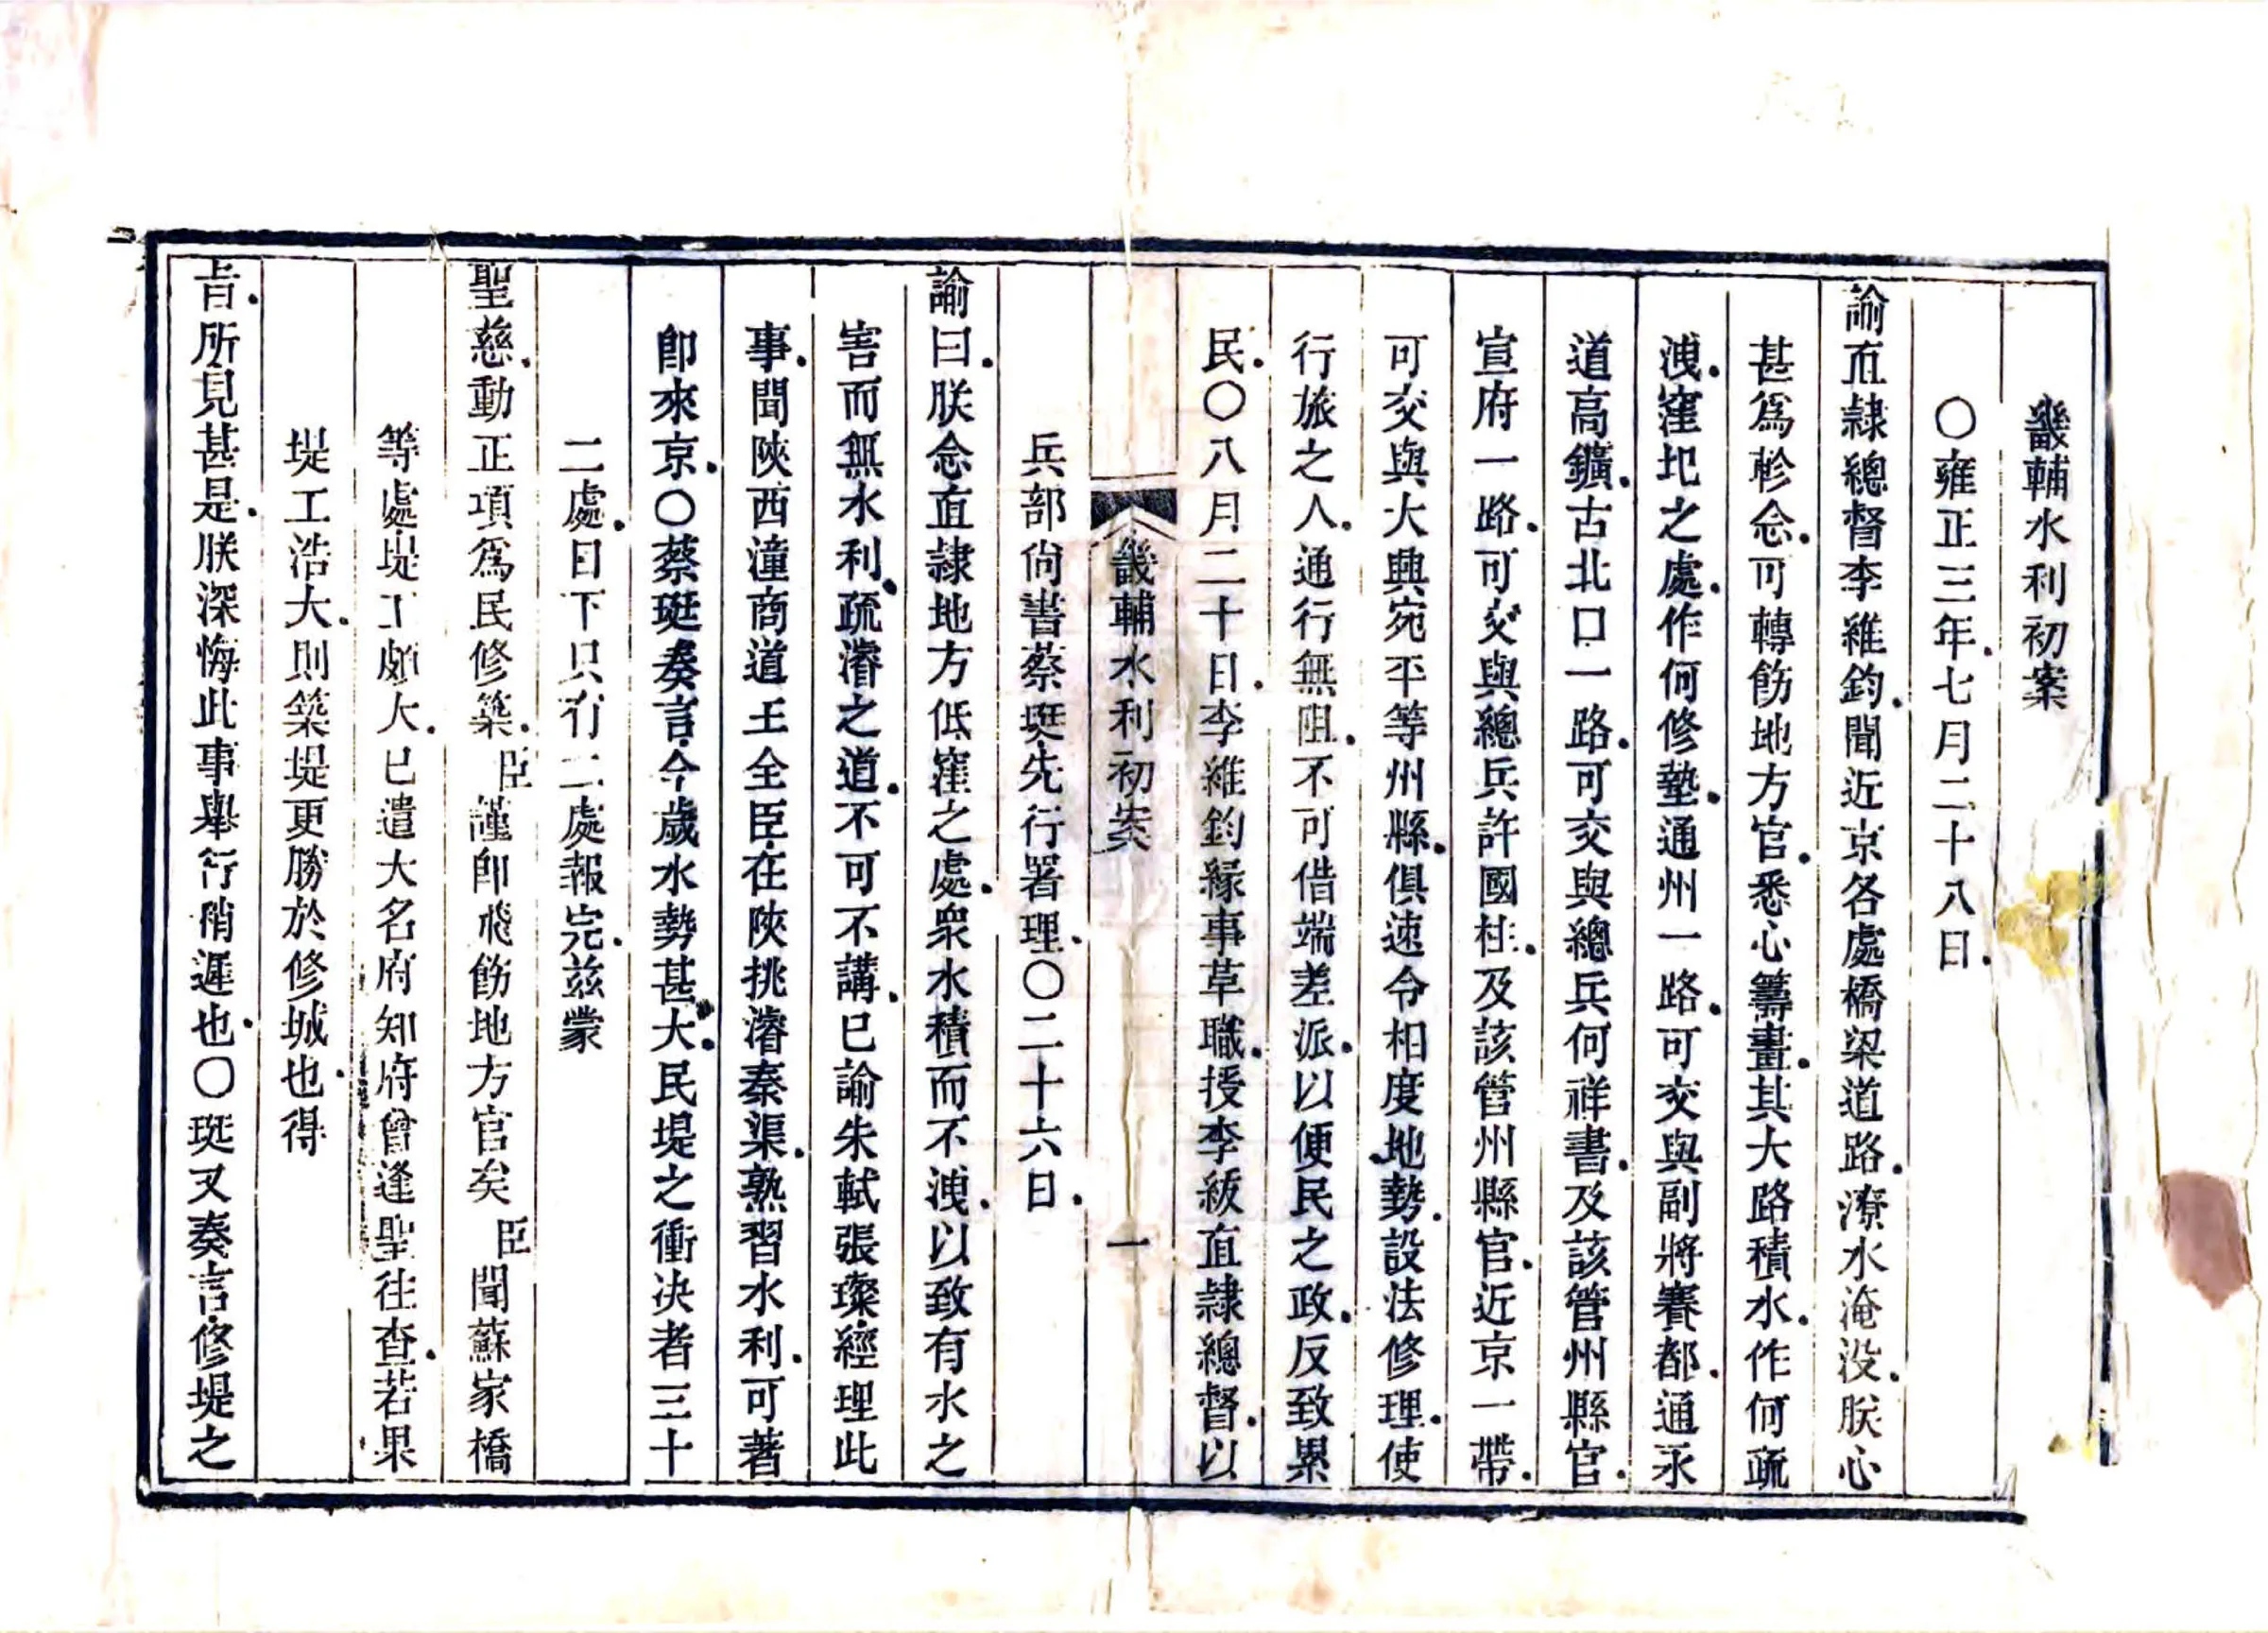 畿輔水利初案
〇雍正三年七月二十八日
諭直隸總督李維鈞聞近京各處橋梁道路潦水淹没朕心
甚爲軫念可轉飭地方官悉心籌畫其大路積水作何疏
洩窪圯之處作何修墊通州一路可交與副將賽都通永
道高鑛古北口一路可交與總兵何祥書及該管州縣官
宣府一路可交與總兵許國柱及該管州縣官近京一帶
可交與大興宛平等州縣俱速令相度地勢設法修理使
行旅之人通行無阻不可借端差派以便民之政反致累
民〇八月二十日李維鈞緣事革職授李紱直隸總督以
畿輔水利初案 一
兵部尙書蔡珽先行署理〇二十六日
諭曰朕念直隸地方低窪之處衆水積而不洩以致有水之
害而無水利疏濬之道不可不講已諭朱軾張璨經理此
事聞陝西潼商道王全臣在陝挑濬秦渠熟習水利可著
卽來京〇蔡珽奏言今歲水勢甚大民堤之衝决者三十
二處目下只有二處報完兹蒙
聖慈動正項爲民修築臣謹卽飛飭地方官矣臣聞蘇家橋
等處堤工頗大已遣大名府知府曾逢聖往查若果
堤工浩大則築堤更勝於修城也得
旨所見甚是朕深悔此事舉行稍遲也〇珽又奏言修堤之